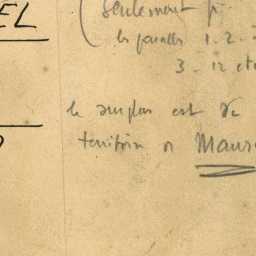 EL
(seulement p.
les parcelles 1. 2.
3 - 12 etc
le surplus est de
territoire de Maur